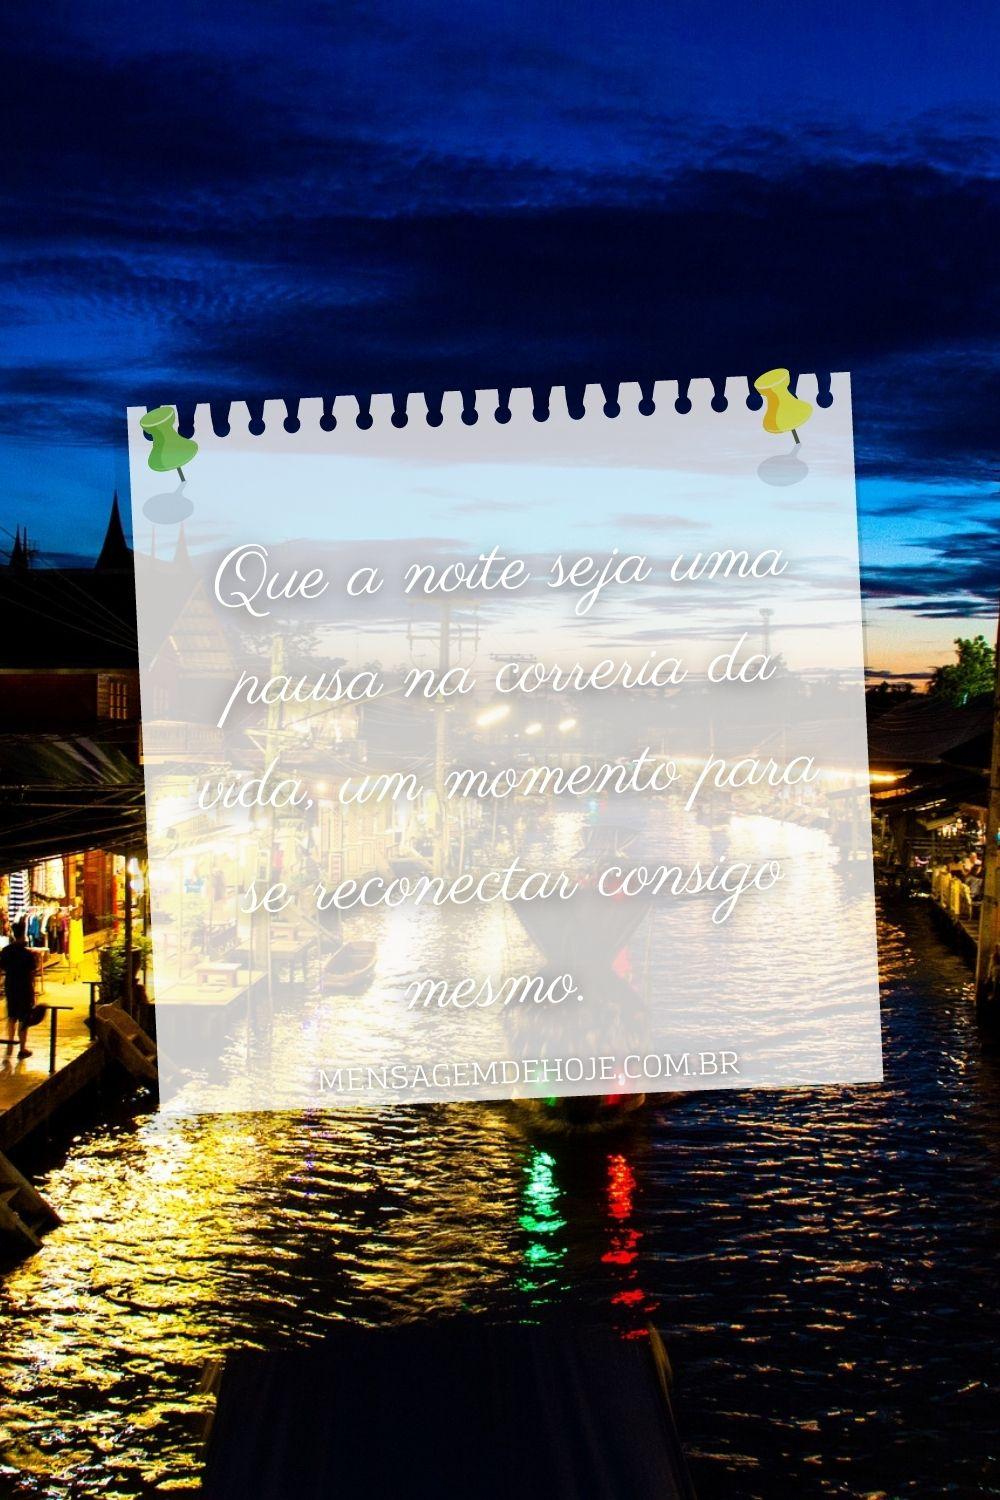 Que a noite seja uma
pausa na correria da
vida, um momento para
se reconectar consigo
mesmo.
MENSAGEMDEHOJE.COM.BR